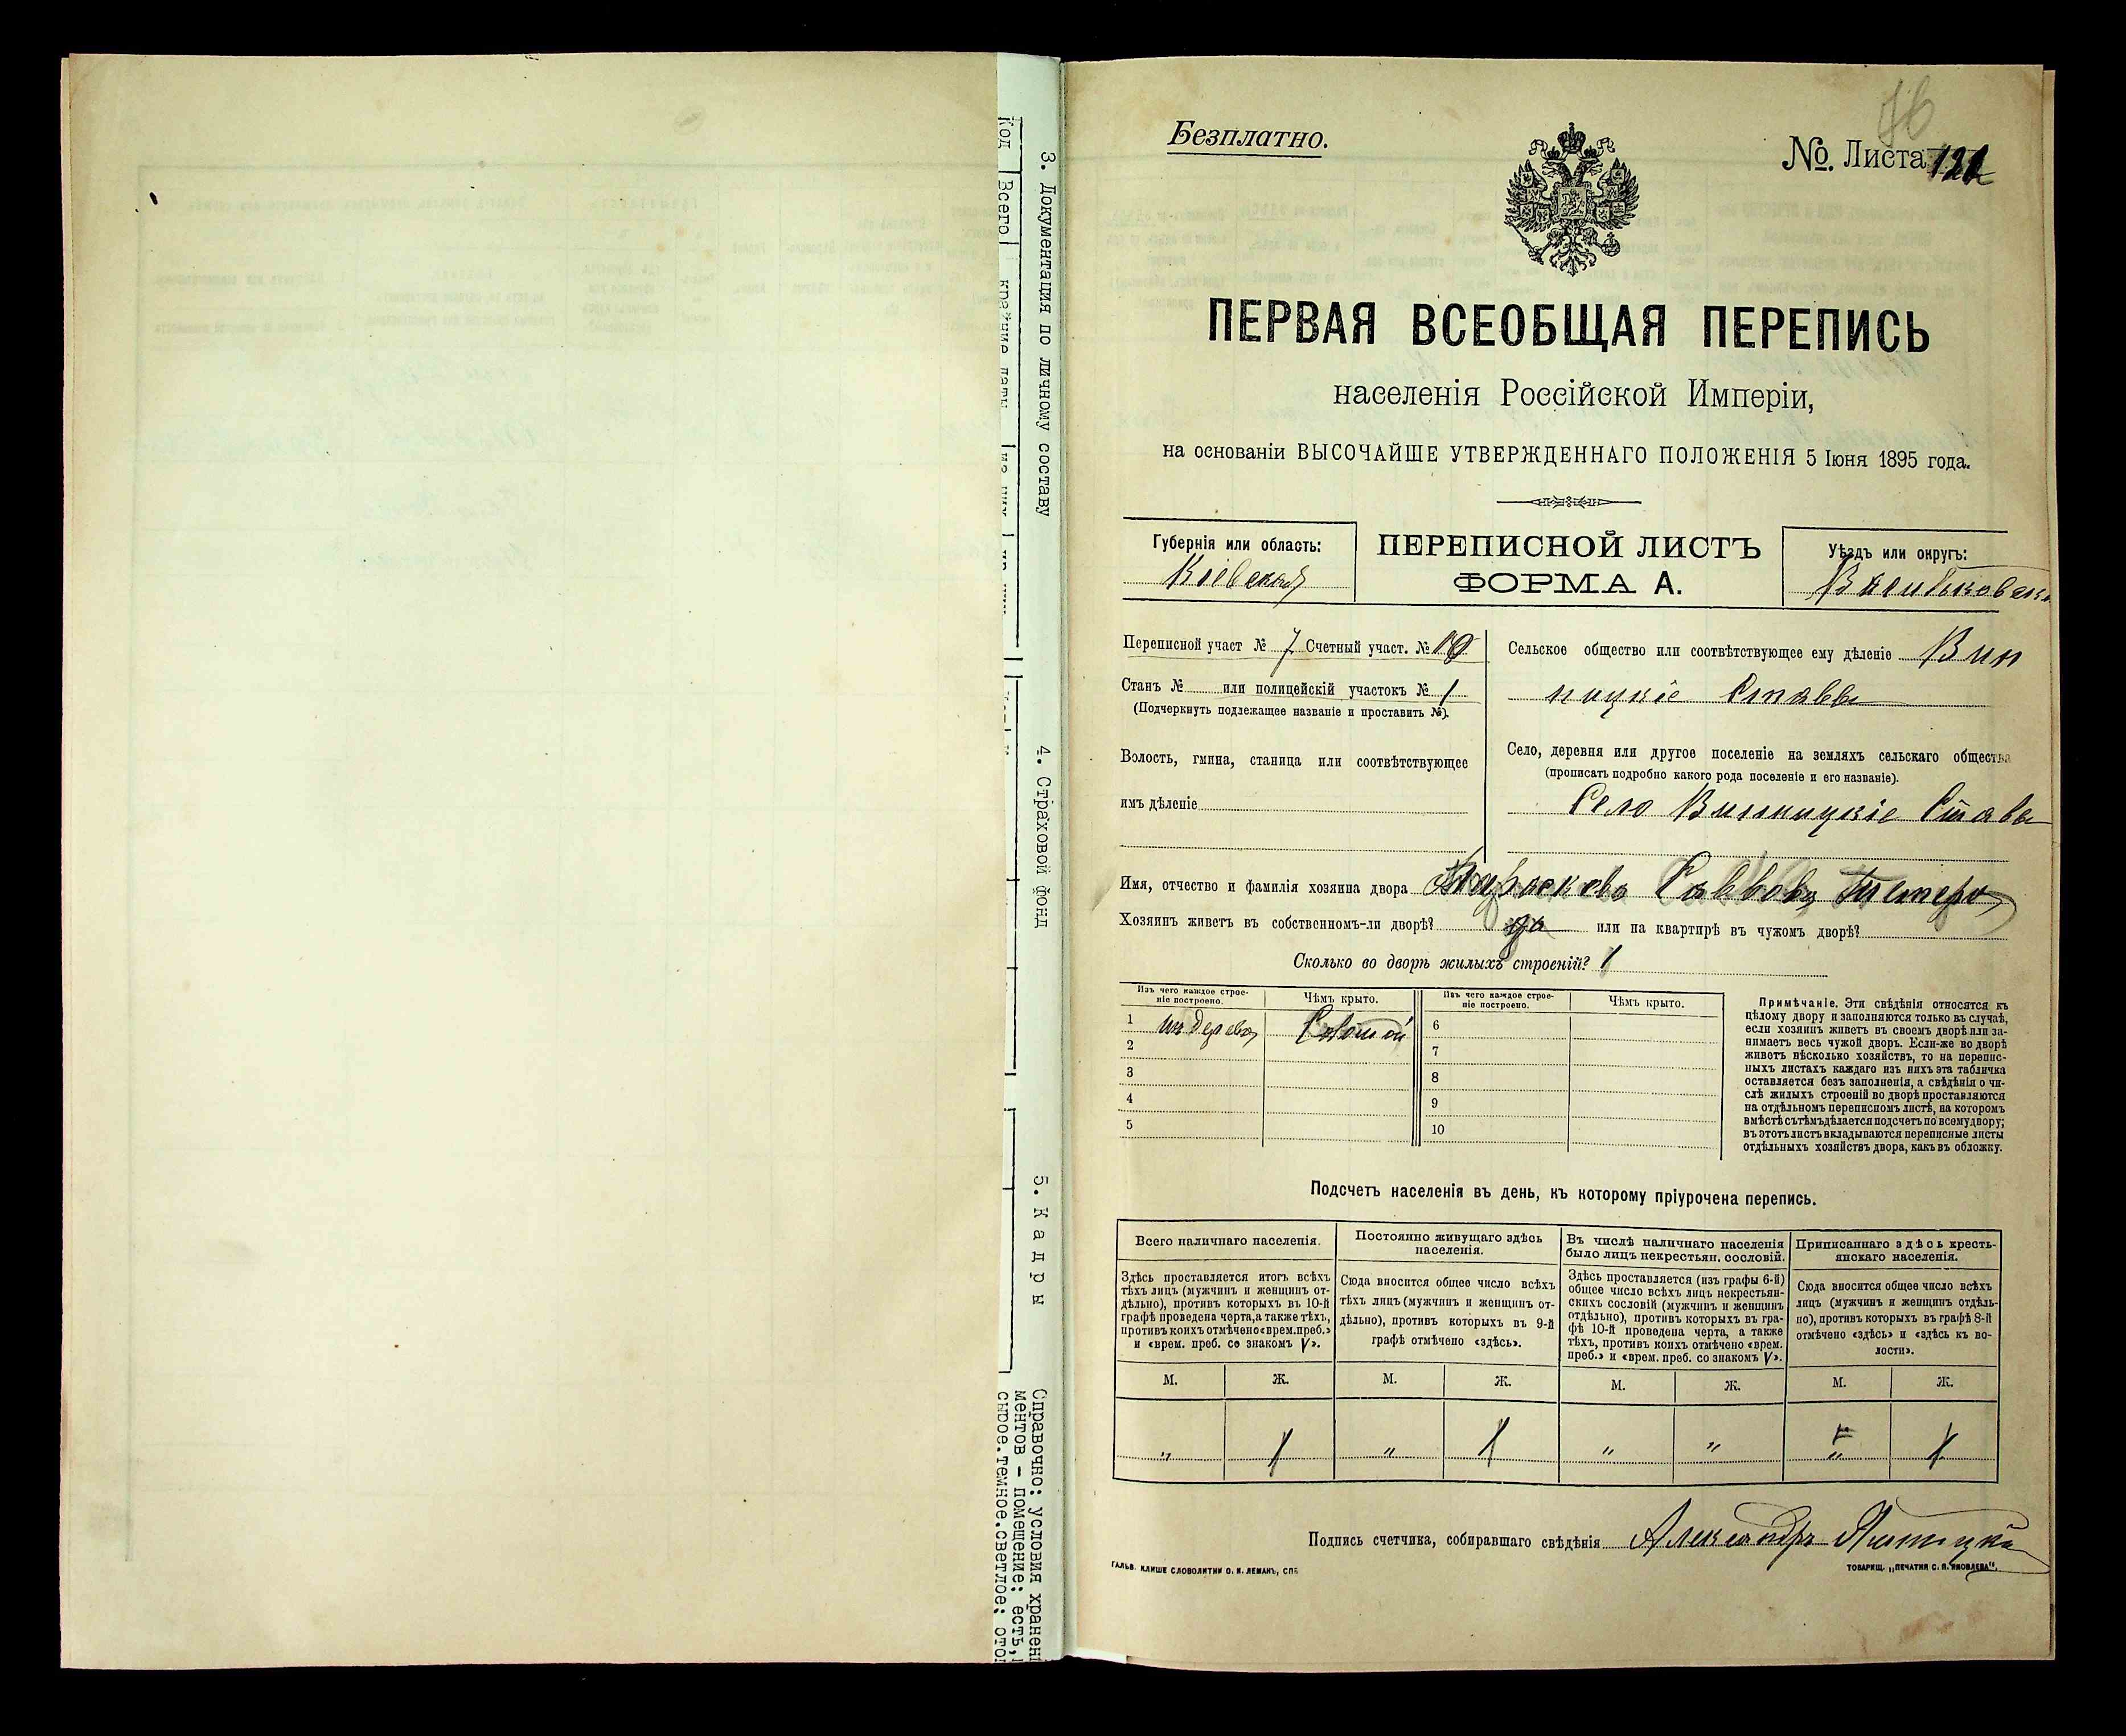 Безплатно.
76
№. Листа 121
ПЕРВАЯ ВСЕОБЩАЯ ПЕРЕПИСЬ
населенія Россійской Имперіи,
на основаніи ВЫСОЧАЙШЕ УТВЕРЖДЕННАГО ПОЛОЖЕНІЯ 5 Іюня 1895 года.
Губернія или область:
Кіевская
ПЕРЕПИСНОЙ ЛИСТЪ
ФОРМА А.
Уѣздъ или округъ:
Васильковскі
Переписной участ № 7 Счетный участ. № 10
Станъ № или полицейскій участокъ № 1
(Подчеркнуть подлежащее названіе и проставить №).
Волость, гмина, станица или соотвѣтствующее
имъ дѣленіе
Сельское общество или соотвѣтствующее ему дѣленіе Вин
ницкіе Ставы
Село, деревня или другое поселеніе на земляхъ сельскаго общества
(прописать подробно какого рода поселеніе и его названіе).
Село Винницкіе Ставы
Имя, отчество и фамилія хозяина двора Саввова Тетеря
Хозяинъ живетъ въ собственномъ-ли дворѣ? да или на квартирѣ въ чужомъ дворѣ?
Сколько во дворѣ жилыхъ строеній? 1
Изъ чего каждое строе-
ніе построено.
Чѣмъ крыто.
Изъ чего каждое строе-
ніе построено.
Чѣмъ крыто.
1 изъ дерева Соломой 6
2 7
3 8
4 9
5 10
Примѣчаніе. Эти свѣдѣнія относятся къ
цѣлому двору и заполняются только въ случаѣ,
если хозяинъ живетъ въ своемъ дворѣ или за-
нимаетъ весь чужой дворъ. Если-же во дворѣ
живетъ нѣсколько хозяйствъ, то на перепис-
ныхъ листахъ каждаго изъ нихъ эта табличка
оставляется безъ заполненія, а свѣдѣнія о чи-
слѣ жилыхъ строеній во дворѣ проставляются
на отдѣльномъ переписномъ листѣ, на которомъ
вмѣстѣ съ тѣмъ дѣлается подсчетъ по всему двору;
въ этотъ листъ вкладываются переписные листы
отдѣльныхъ хозяйствъ двора, какъ въ обложку.
Подсчетъ населенія въ день, къ которому пріурочена перепись.
Всего наличнаго населенія.
Здѣсь проставляется итогъ всѣхъ
тѣхъ лицъ (мужчинъ и женщинъ от-
дѣльно), противъ которыхъ въ 10-й
графѣ проведена черта, а также тѣхъ,
противъ коихъ отмѣчено «врем. преб.»
и «врем. преб. со знакомъ V».
Постоянно живущаго здѣсь
населенія.
Сюда вносится общее число всѣхъ
тѣхъ лицъ (мужчинъ и женщинъ от-
дѣльно), противъ которыхъ въ 9-й
графѣ отмѣчено «здѣсь».
Въ числѣ наличнаго населенія
было лицъ некрестьян. сословій.
Здѣсь проставляется (изъ графы 6-й)
общее число всѣхъ лицъ некрестьян-
скихъ сословій (мужчинъ и женщинъ
отдѣльно), противъ которыхъ въ гра-
фѣ 10-й проведена черта, а также
тѣхъ, противъ коихъ отмѣчено «врем.
преб.» и «врем. преб. со знакомъ V».
Приписаннаго здѣсь кресть-
янскаго населенія.
Сюда вносится общее число всѣхъ
лицъ (мужчинъ и женщинъ отдѣль-
но), противъ которыхъ въ графѣ 8-й
отмѣчено «здѣсь» и «здѣсь къ во-
лости».
М. Ж. М. Ж. М. Ж. М. Ж.
" 1 " 1 " " " 1
Подпись счетчика, собиравшаго свѣдѣнія Александръ
ГАЛЬВ. КЛИШЕ СЛОВОЛИТНИ О. И. ЛЕМАНЪ, СПБ
ТОВАРИЩ. „ПЕЧАТНЯ С. П. ЯКОВЛЕВА“.
3. Документация по личному составу
4. Страховой фонд
5. Кадры
Справочно: условия хранен
ментов - помещение: есть,
сырое.темное.светлое: ото
Код Всего крайние даты